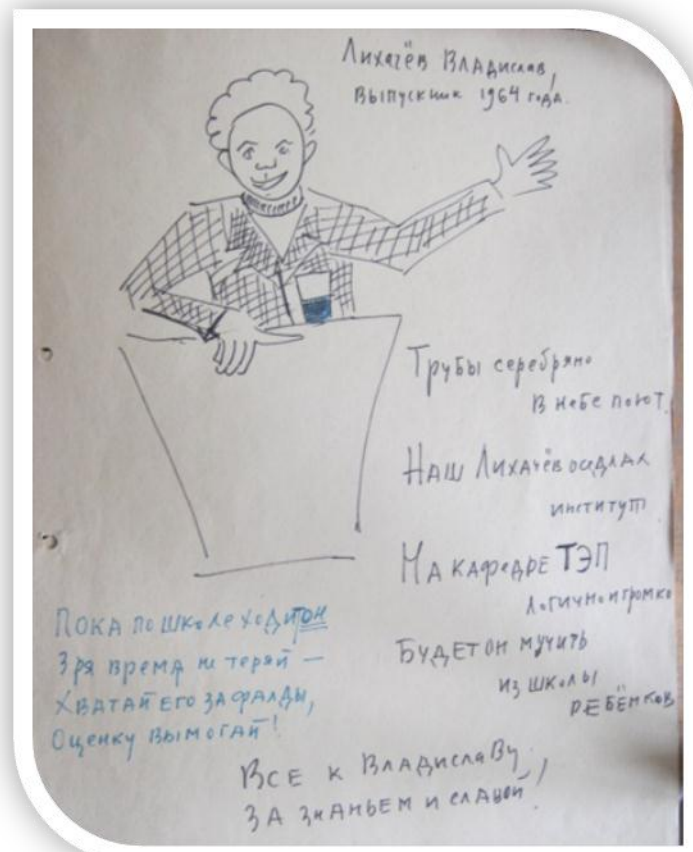 Лихачёв Владислав,
выпускник 1964 года.
Трубы серебряно
в небе поют.
Наш Лихачёв оседлал
институт
На кафедре ТЭП
логично и громко
Будет он мучить
из школы
ребёнков
Пока по школе ходит он
Зря время не теряй —
Хватай его за фалды,
Оценку вымогай!
Все к Владиславу,
за знаньем и славой!